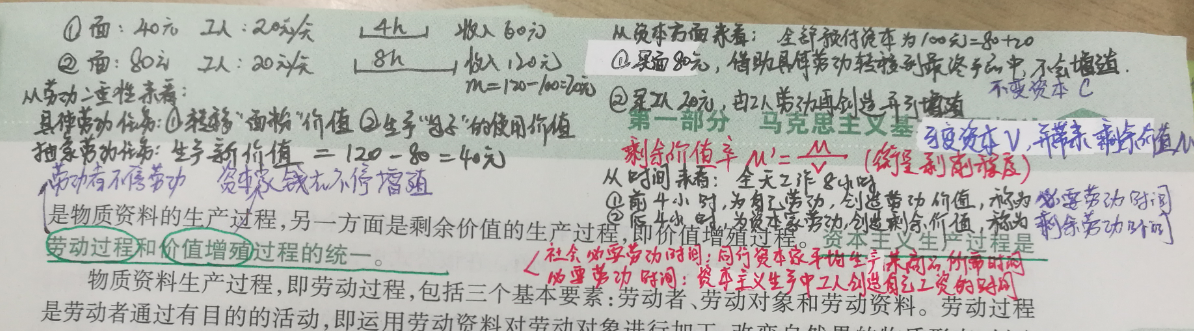 ①面：40元 工人：20元/天 4h 收入60元
②面：80元 工人：20元/天 8h 收入120元
m=120-100=20元
从劳动二重性来看：
具体劳动任务：①转移“面粉”价值 ②生产“包子”的使用价值
抽象劳动任务：生产新价值 = 120-80=40元
劳动者不停劳动 资本家钱在不停增殖
从资本方面来看：全部预付资本为100元=80+20
①买面80元，借助具体劳动转移到最终产品中，不会增殖.
不变资本 C
②买工人20元，由工人劳动再创造并引增殖
第一部分 马克思主义基
可变资本V，并带来剩余价值M
剩余价值率 M'=M/V (衡量剥削程度)
从时间来看：全天工作8小时
①前4小时，为自己劳动，创造劳动价值，称为必要劳动时间
②后4小时，为资本家劳动，创造剩余价值，称为剩余劳动时间
是物质资料的生产过程，另一方面是剩余价值的生产过程，即价值增殖过程。资本主义生产过程是
劳动过程和价值增殖过程的统一。
社会必要劳动时间：同行资本家平均生产某商品所需时间
必要劳动时间：资本主义生产中工人创造自己工资的时间
物质资料生产过程，即劳动过程，包括三个基本要素：劳动者、劳动对象和劳动资料。劳动过程
是劳动者通过有目的的活动，即运用劳动资料对劳动对象进行加工，改变自然界的物质形